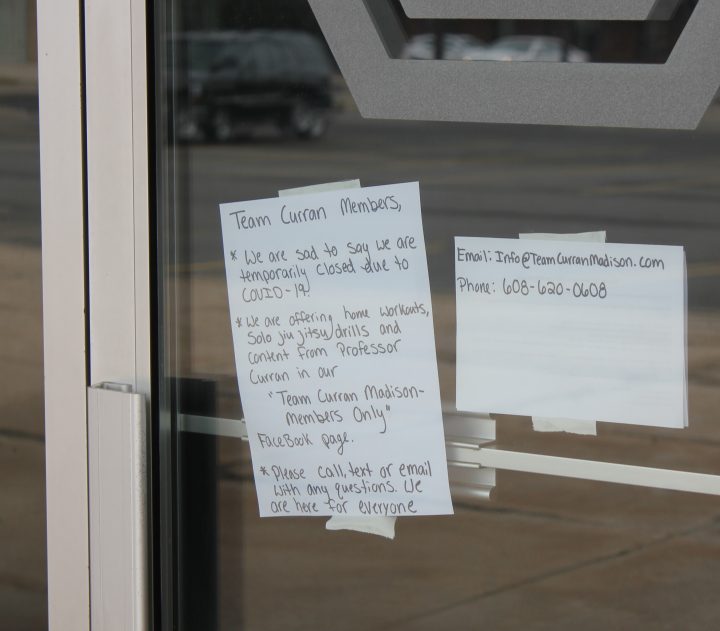 Team Curran Members,
* We are sad to say we are
temporarily closed due to
COVID-19.
* We are offering home workouts,
Solo jiu jitsu drills and
content from Professor
Curran in our
"Team Curran Madison-
Members Only"
FaceBook page.
* Please call, text or email
with any questions. We
are here for everyone
Email: Info@TeamCurranMadison.com
Phone: 608-620-0608